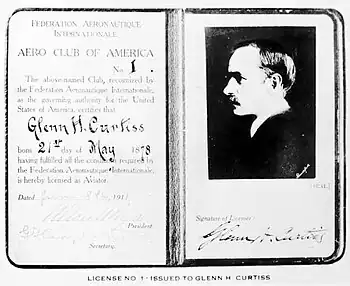 FEDERATION AERONAUTIQUE
INTERNATIONALE
AERO CLUB OF AMERICA
No. 1.
The above-named Club, recognized by
the Federation Aeronautique Internationale,
as the governing authority for the United
States of America, certifies that
Glenn H. Curtiss
born 21st day of May 1878
having fulfilled all the conditions required by
the Federation Aeronautique Internationale,
is hereby licensed as Aviator.
Dated 1911
President
Secretary.
[SEAL]
Signature of Licensee
Glenn H. Curtiss
LICENSE NO 1 - ISSUED TO GLENN H CURTISS